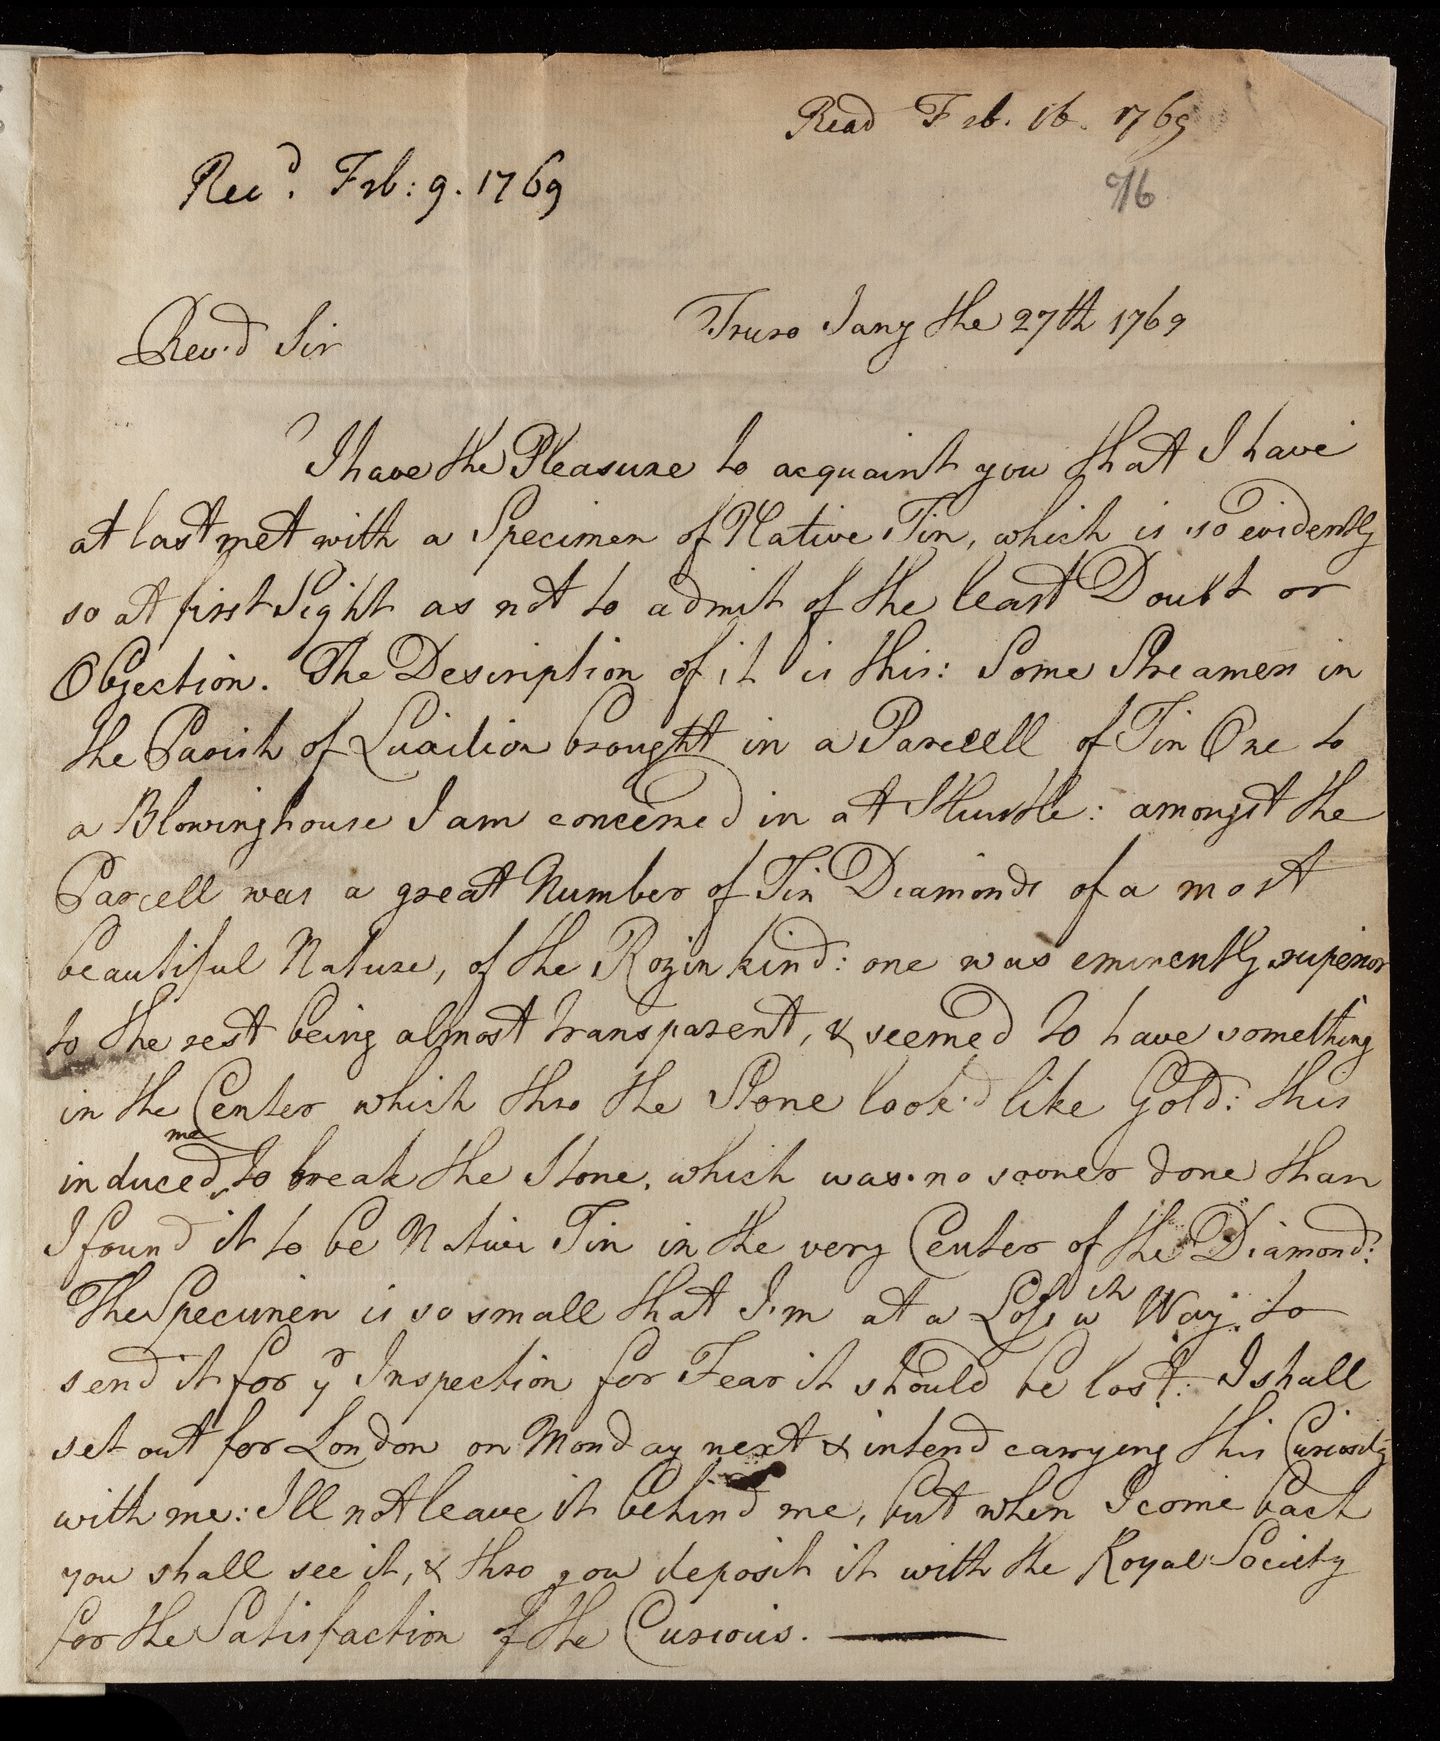 Read Feb. 16. 1769
Recd. Feb: 9. 1769
96
Truro Jany the 27th 1769
Rev.d Sir
I have the Pleasure to acquaint you that I have
at last met with a Specimen of Native Tin, which is so evidently
so at first Sight as not to admit of the least Doubt or
Objection. The Description of it is this: Some Streamers in
the Parish of brought in a Parcell of Tin Ore to
a Blowinghouse I am concerned in at : amongst the
Parcell was a great Number of Tin Diamonds of a most
beautiful Nature, of the Rozin kind: one was eminently superior
to the rest being almost transparent, & seemed to have something
in the Center which thro the Stone look'd like Gold: this
induced me to break the Stone, which was no sooner done than
I found it to be Native Tin in the very Center of the Diamond:
The Specimen is so small that I'm at a Loss wch Way to
send it for yr Inspection for Fear it should be lost: I shall
set out for London on Monday next & intend carrying this Curiosity
with me: I'll not leave it behind me, but when I come back
you shall see it, & thro you deposit it with the Royal Society
for the Satisfaction of the Curious.